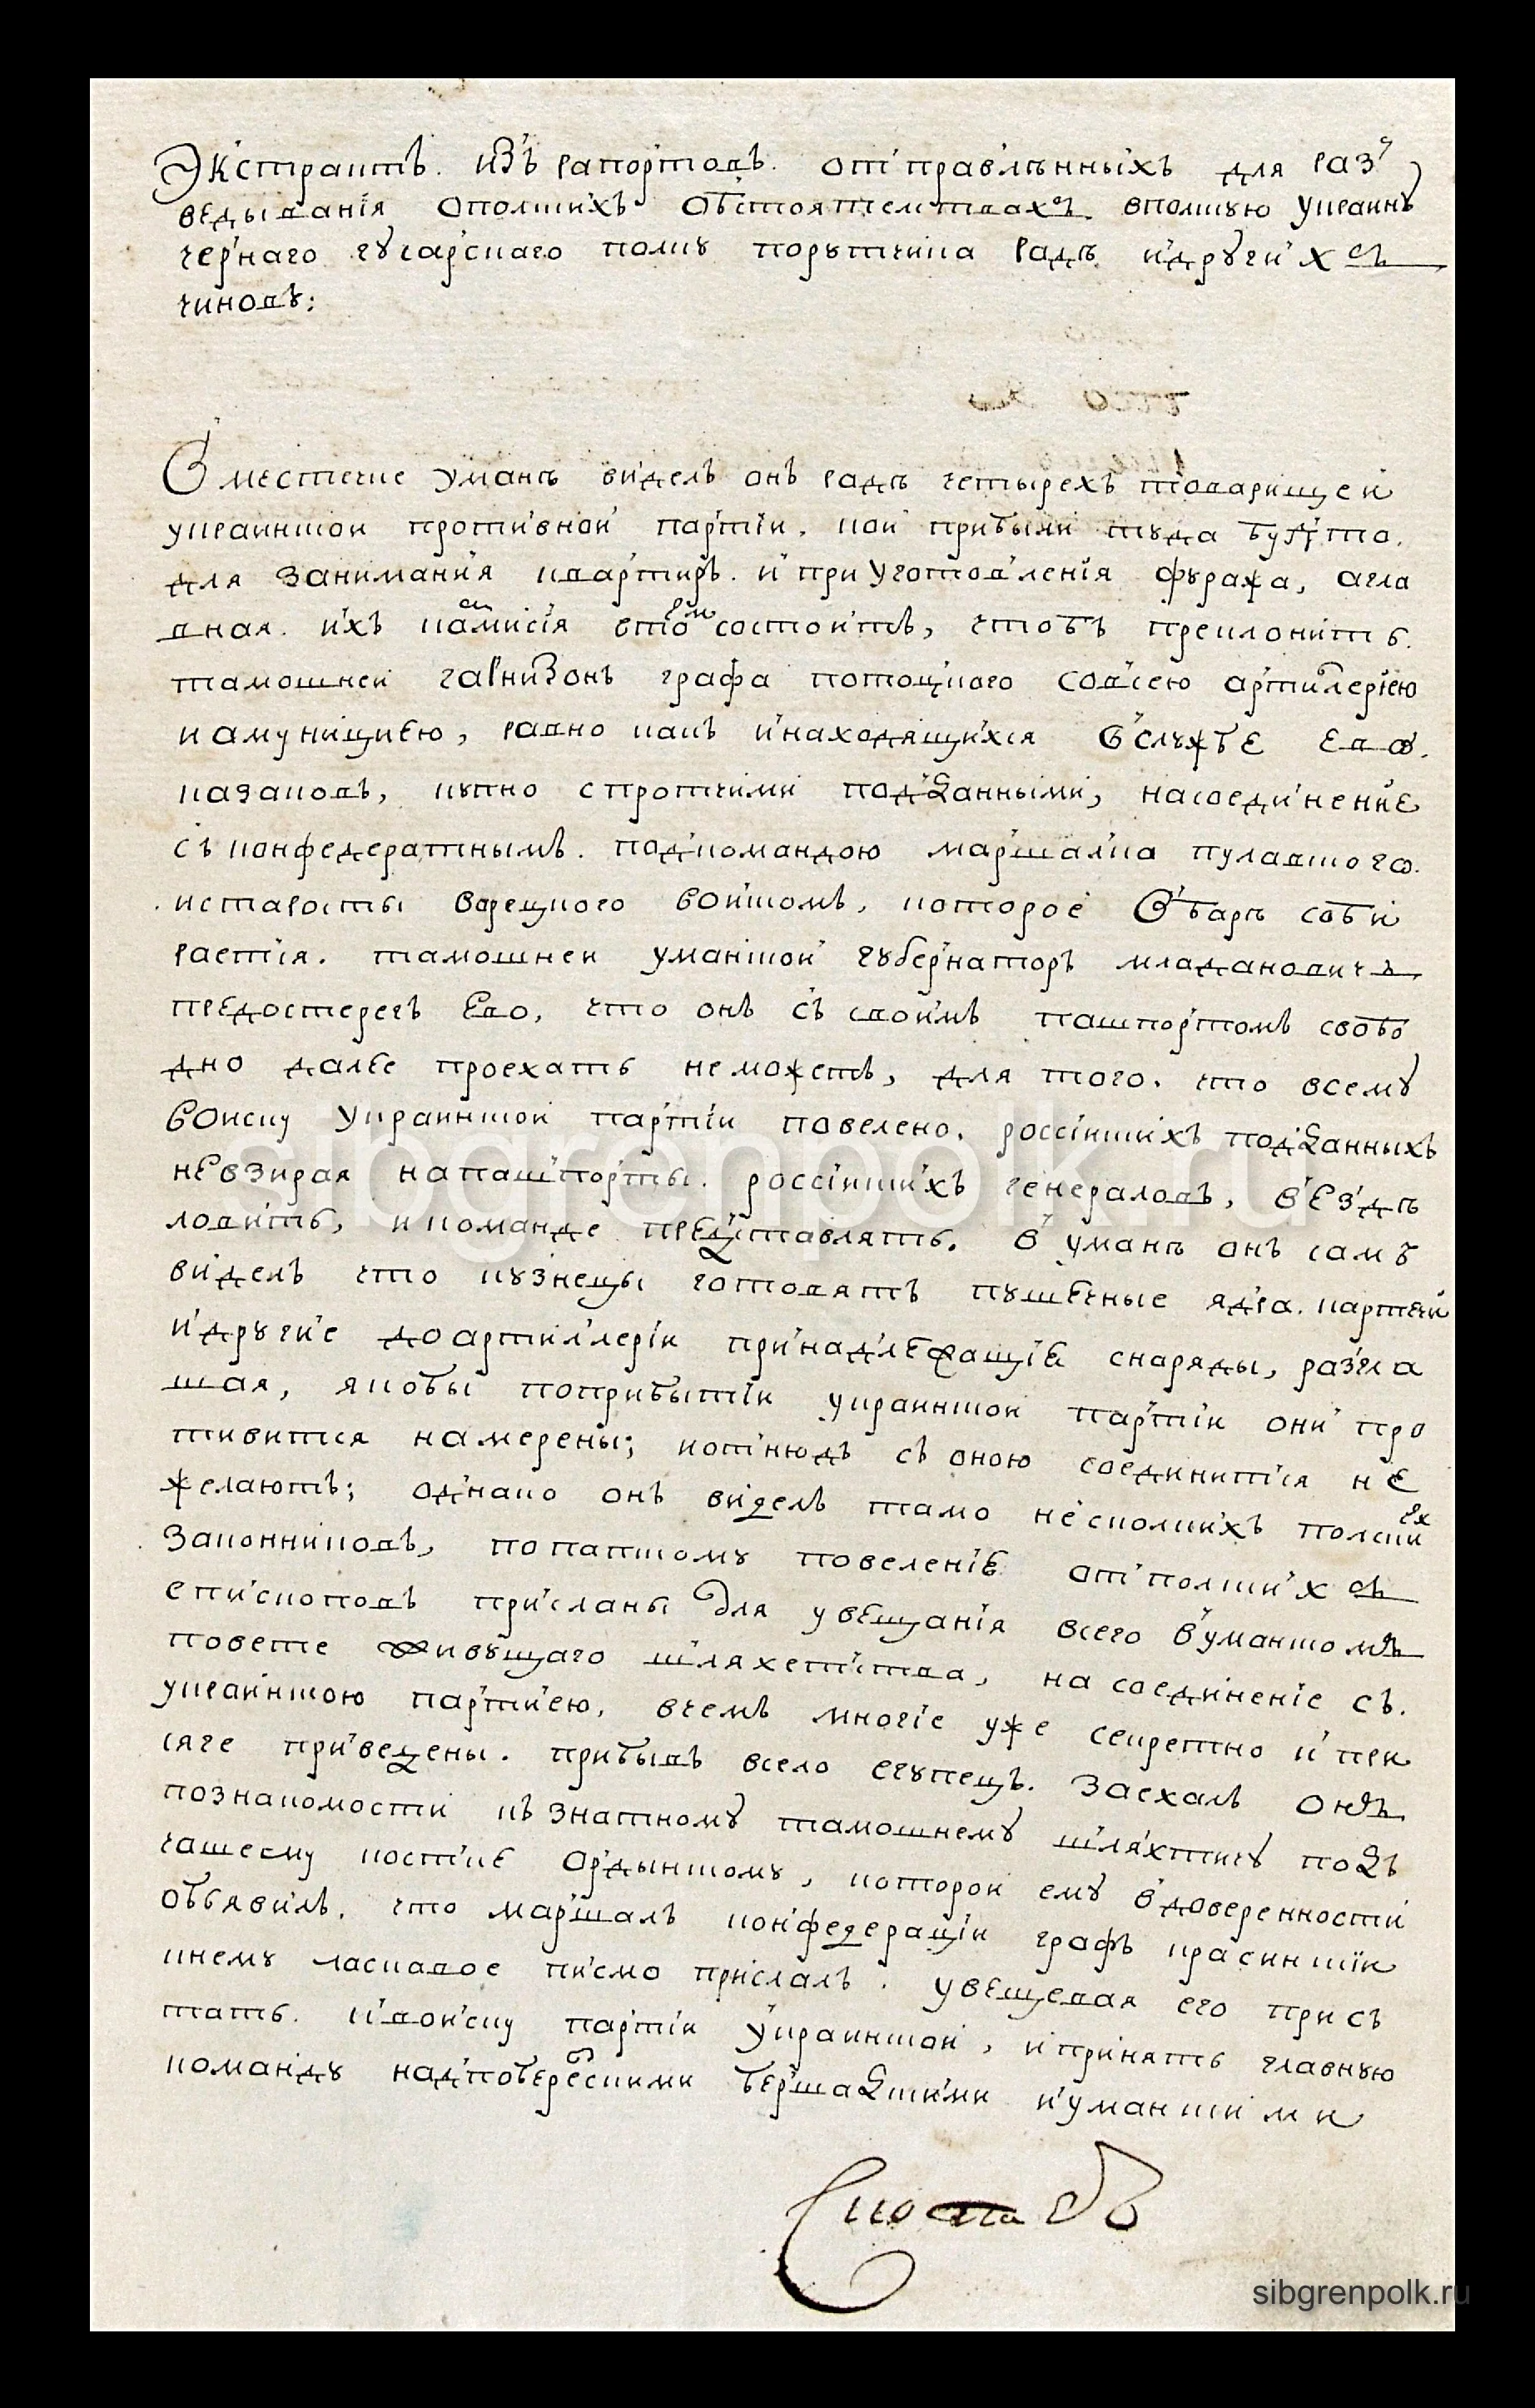 Экстрактъ. изъ рапортовъ. отправлѣнныхъ для раз
ведыванiя ополскихъ обстоятелствахъ. вполскую украину
чернаго гусарскаго полку порутчика радъ идругихъ
чиновъ:
В местечке умань виделъ онъ радъ четырехъ товарищей
украинской противной партiи. кои прибыли туда будто.
для занимания квартиръ. и приуготовленiя фуража, агла
вная. ихъ камисiя втомъ состоитъ, чтобъ преклонить.
тамошней гарнизонъ графа потоцкого совсею артилерiею
и амуницыею, равно какъ инаходящихся вслужбе ево.
казаковъ, купно спротчими подданными, насоединение
съ конфедератнымъ. подкомандою маршалка пулавского.
истаросты ворецкого войскомъ, которое въ баръ соби
раетса. тамошней уманской губернаторъ младановичъ
предостерегъ ево, что онъ съ своимъ пашпортомъ свобо
дно далее проехать неможетъ, для того. что всему
войску украинской партiи повелено. россiйскихъ подданныхъ
невзирая напашпорты. россiйскихъ генераловъ, вездѣ
ловить, и команде представлять. в умань онъ самъ
виделъ что кузнецы готовятъ пушечные ядра. картечи
идругие доартиллерiи принадлежащiе снаряды, разгла
шая, якобы поприбытiи украинской партiи они про
тивится намерены; иотнюдъ съ оною соединится не
желаютъ; однако онъ виделъ тамо несколкихъ полскихъ
законниковъ, по папскому повеленiе отполскихъ
епископовъ присланы для увещанiя всего вуманскомъ
повете живущаго шляхетства, на соединенiе съ.
украинскою партиею. вчемъ многiе уже секретно и при
сяге приведены. прибывъ всело егупецъ. заехалъ онъ
познакомости къ знатному тамошнему шляхтичу подъ
чашему костке ордынскому, которой ему вдоверенности
объявилъ. что маршалъ конфедерацiи графъ красинскiи
кнему ласкавое писмо прислалъ. увещевая его прис
тать. и войску партiи украинской, ипринять главную
команду надпобережскими бершадскими иуманскими
sibgrenpolk.ru
sibgrenpolk.ru